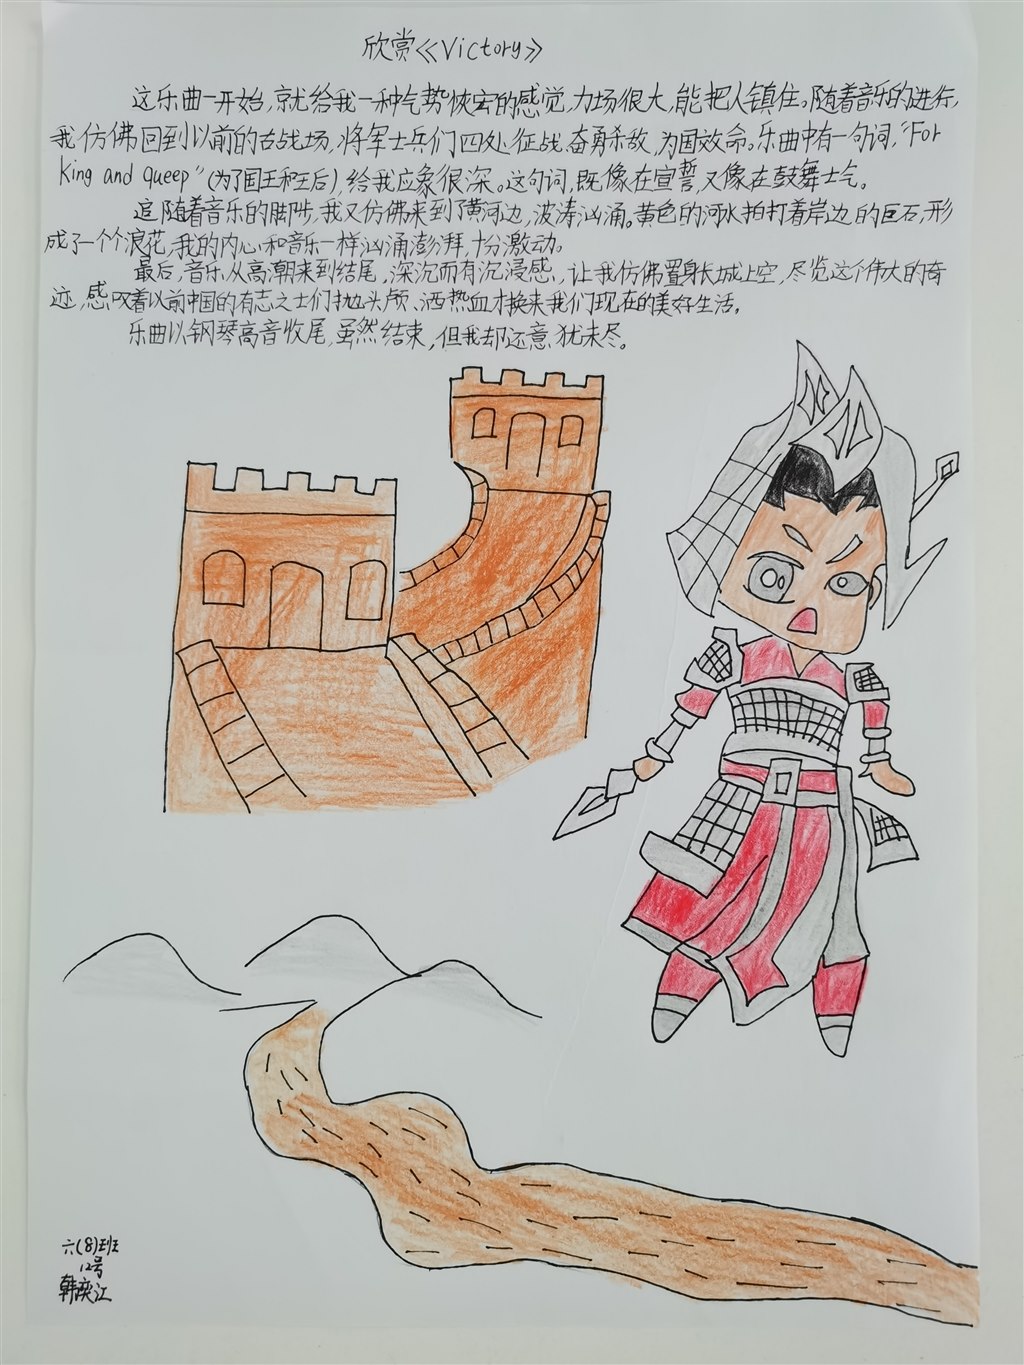 欣赏《Victory》
这乐曲一开始,就给我一种气势恢宏的感觉,力场很大,能把人镇住。随着音乐的进行,
我仿佛回到以前的古战场,将军士兵们四处征战,奋勇杀敌,为国效命。乐曲中有一句词,“For
king and queep”(为了国王和王后),给我应象很深。这句词,既像在宣誓,又像在鼓舞士气。
追随着音乐的脚步,我又仿佛来到了黄河边,波涛汹涌。黄色的河水拍打着岸边的巨石,形
成了一个个浪花,我的内心和音乐一样汹涌澎湃,十分激动。
最后,音乐从高潮来到结尾,深沉而有沉浸感,让我仿佛置身长城上空,尽览这个伟大的奇
迹,感叹着以前中国的有志之士们抛头颅、洒热血才换来我们现在的美好生活。
乐曲以钢琴高音收尾,虽然结束,但我却还意犹未尽。
六(8)班
12号
韩奕江